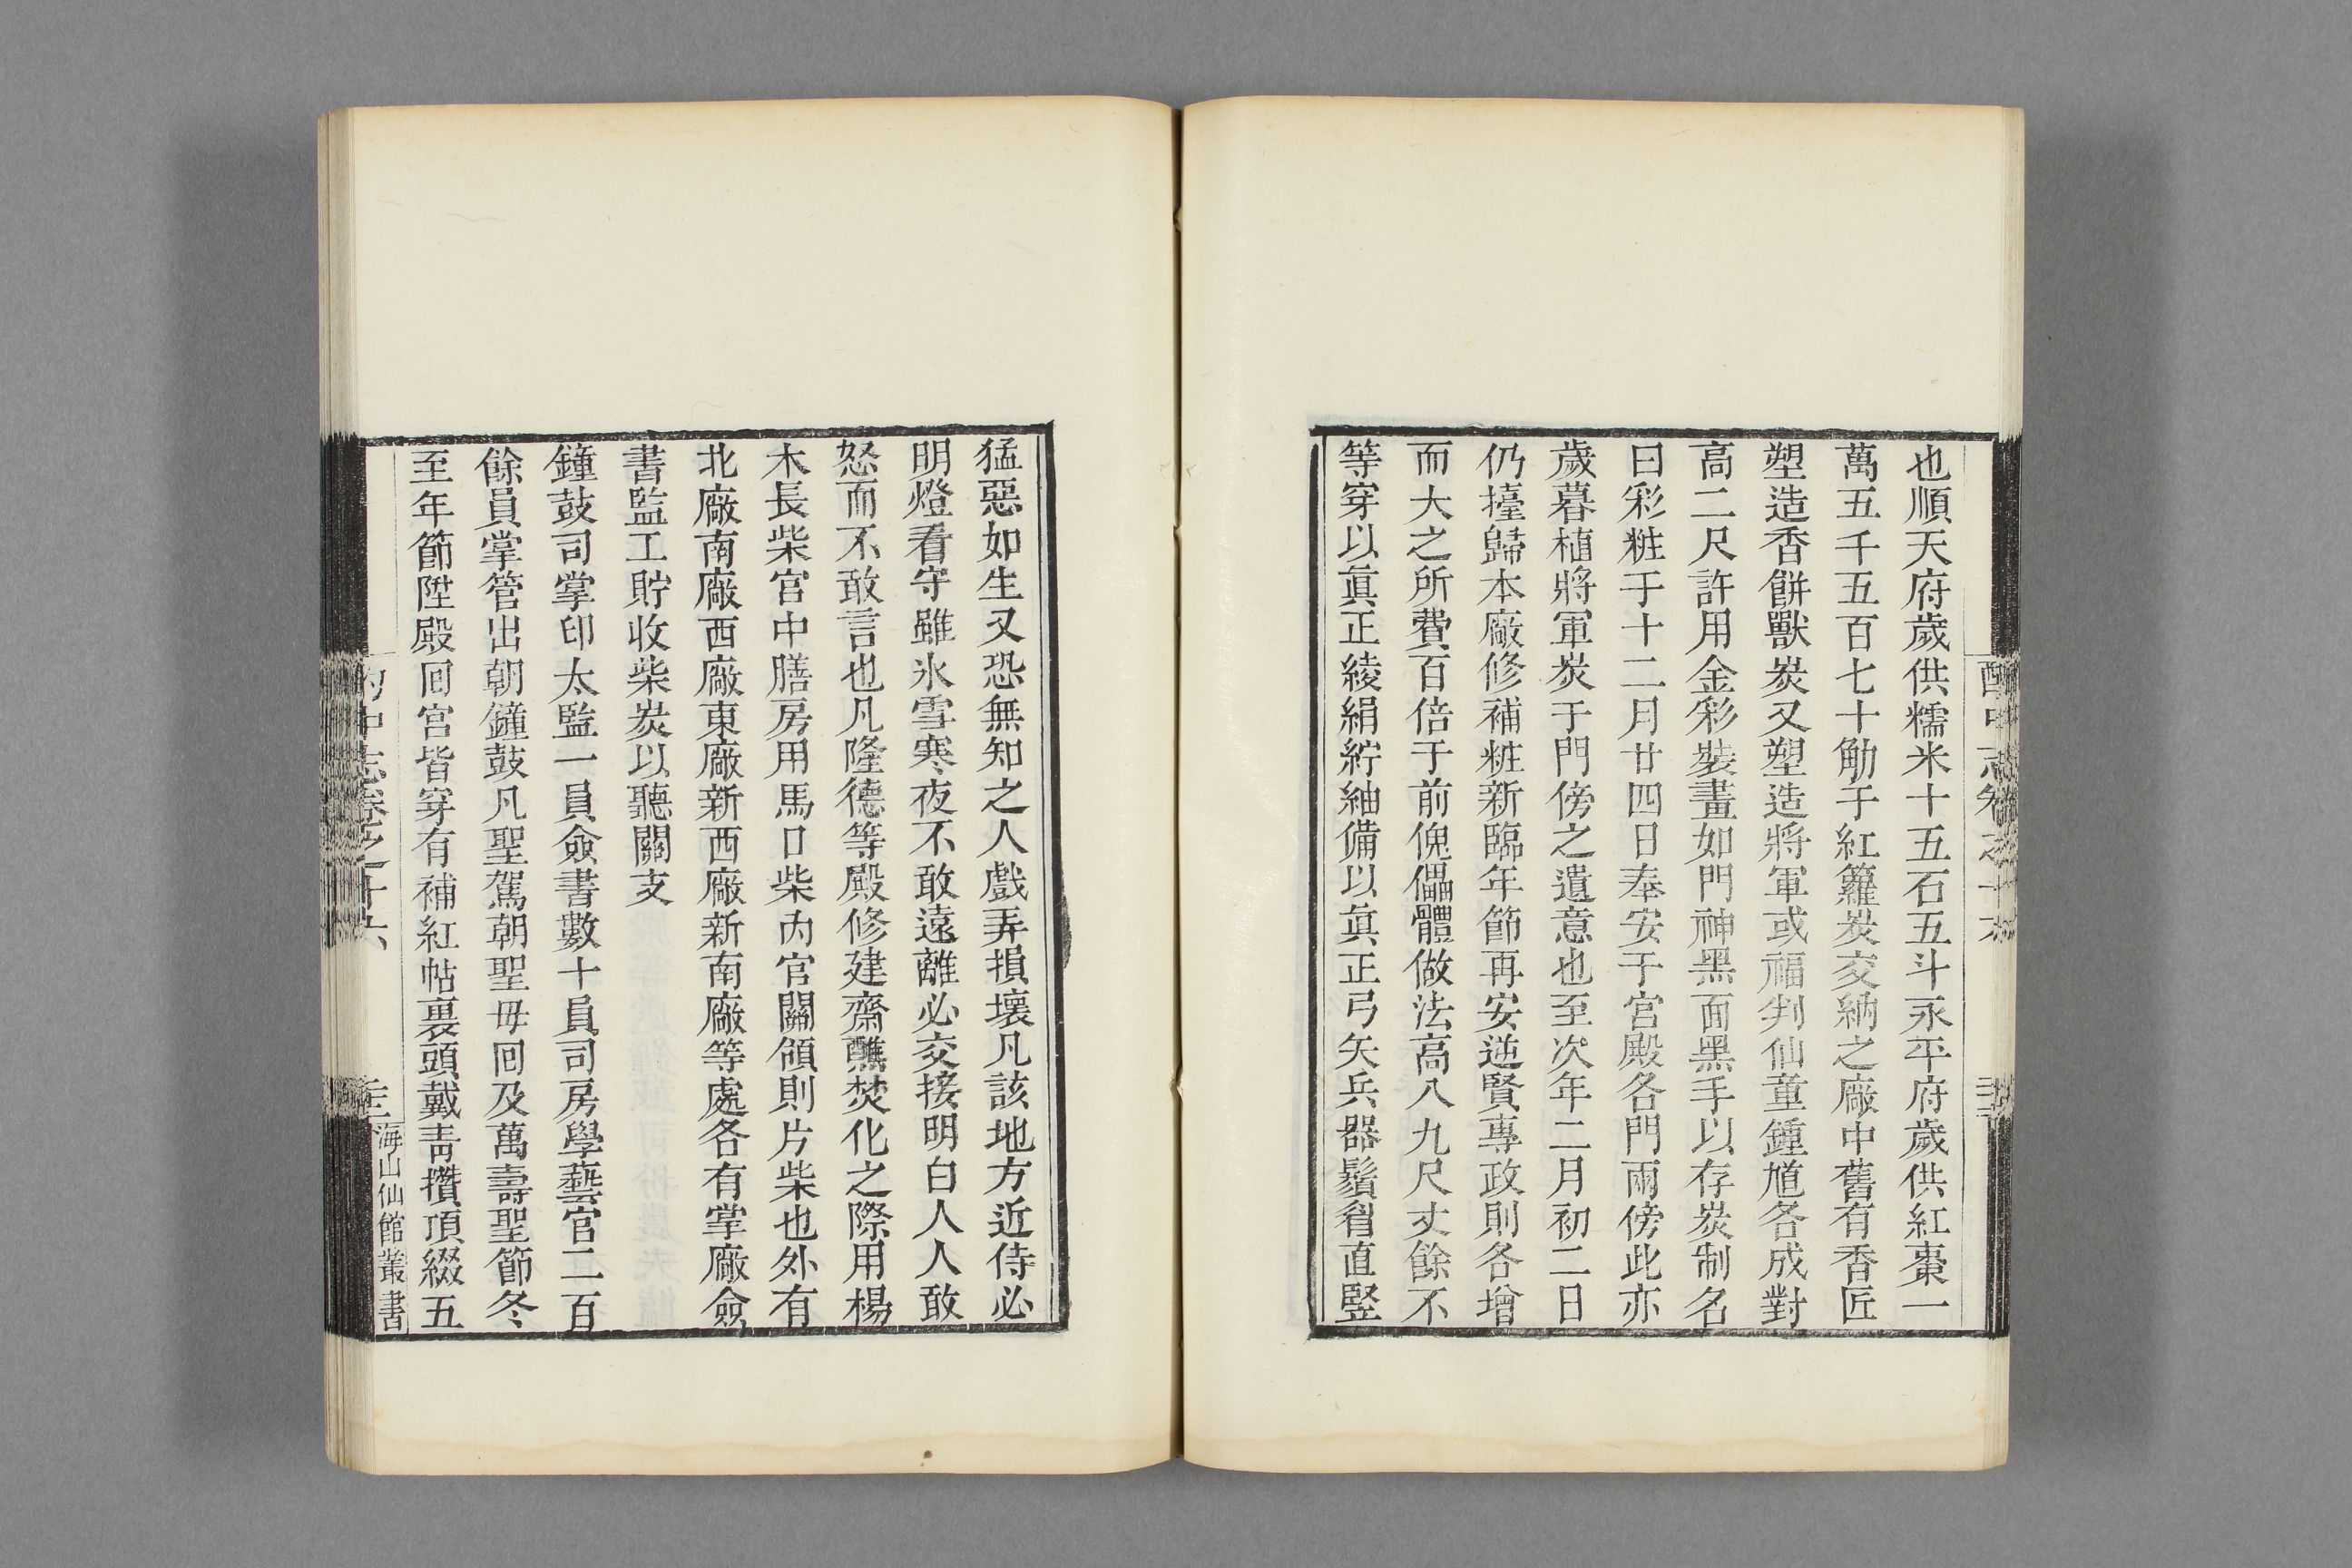 也順天府歲供糯米十五石五斗永平府歲供紅棗一
萬五千五百七十觔于紅籮炭交納之廠中舊有香匠
塑造香餅獸炭又塑造將軍或福判仙童鍾馗各成對
高二尺許用金彩裝畫如門神黑面黑手以存炭制名
曰彩粧于十二月廿四日奉安于宮殿各門兩傍此亦
歲暮植將軍炭于門傍之遺意也至次年二月初二日
仍擡歸本廠修補粧新臨年節再安逆賢專政則各增
而大之所費百倍于前傀儡體做法高八九尺丈餘不
等穿以眞正綾絹紵紬備以眞正弓矢兵器鬚眉直竪
猛惡如生又恐無知之人戲弄損壞凡該地方近侍必
明燈看守雖氷雪寒夜不敢遠離必交接明白人人敢
怒而不敢言也凡隆德等殿修建齋醮焚化之際用楊
木長柴宮中膳房用馬口柴内官關領則片柴也外有
北廠南廠西廠東廠新西廠新南廠等處各有掌廠僉
書監工貯收柴炭以聽關支
鐘鼓司掌印太監一員僉書數十員司房學藝官二百
餘員掌管出朝鐘鼓凡聖駕朝聖母囘及萬壽聖節冬
至年節陞殿囘宮皆穿有補紅帖裏頭戴靑攢頂綴五
酌中志卷之十六
海山仙館叢書